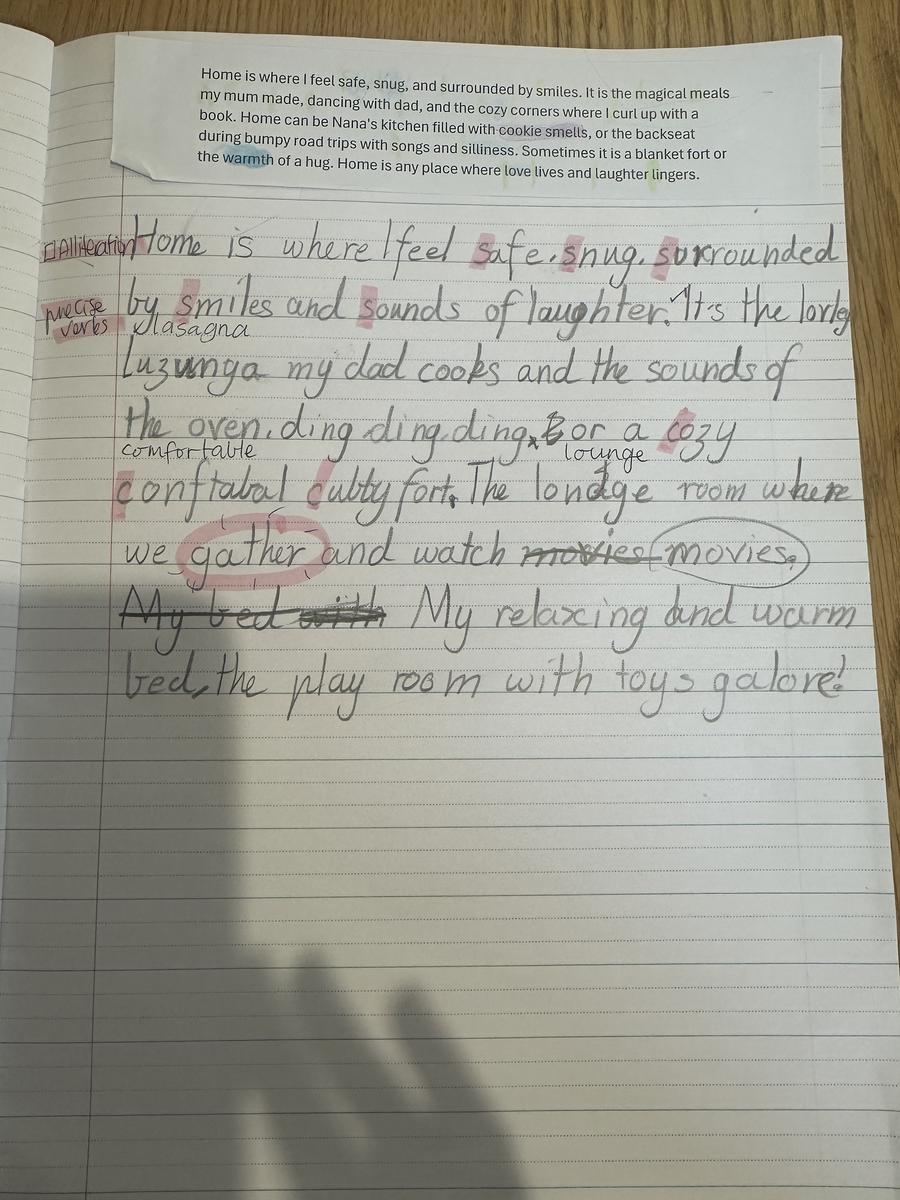 Home is where I feel safe, snug, and surrounded by smiles. It is the magical meals
my mum made, dancing with dad, and the cozy corners where I curl up with a
book. Home can be Nana's kitchen filled with cookie smells, or the backseat
during bumpy road trips with songs and silliness. Sometimes it is a blanket fort or
the warmth of a hug. Home is any place where love lives and laughter lingers.
Alliteration Home is where I feel safe. snug. surrounded
precise by smiles and sounds of laughter. It's the lovley
verbs lasagna
Luzunga my dad cooks and the sounds of
the oven. ding ding ding. or a cozy
comfortable lounge
conftabal cubby fort. The londge room where
we gather and watch movies movies.
My bed with My relaxing and warm
bed, the play room with toys galore!